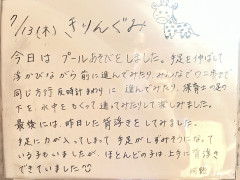 7/13(木) きりんぐみ
今日は プールあそびをしました。手足を伸ばして
浮かびながら 前に進んでみたり、みんなでワニ歩きで
同じ方向、反時計まわりに 進んでみたり、保育士の足の
下を 水中をもぐって通ってみたりして楽しみました。
最後には、昨日した背浮きをしてみました。
手足に力が入ってしまって 手足がしずみそうになって
いる子もいましたが、ほとんどの子は上手に背浮き
できていました